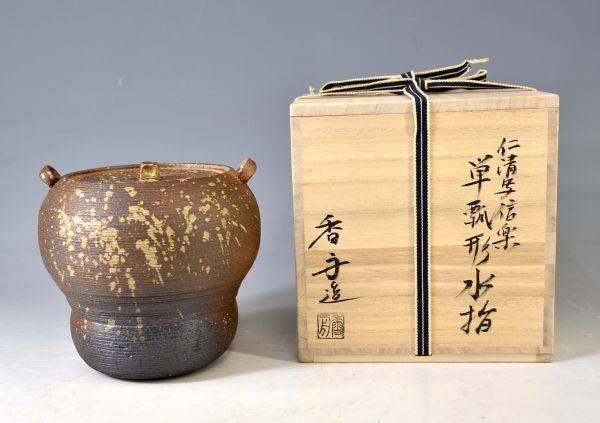 仁清写信楽
単瓢形水指
香舟造